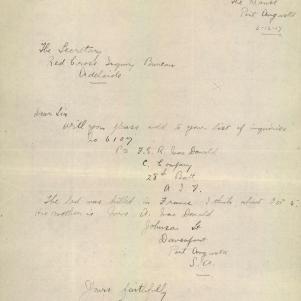 The Manse
Port Augusta
6-12-17
The Secretary
Red Cross Inquiry Bureau
Adelaide
Dear Sir
Will you please add to your list of inquiries
No 6107
Pte F. G. A. MacDonald
C. Company
28th Batt
A I F.
The lad was killed in France I think about Oct
His mother is Mrs A. MacDonald
Johnson St
Davenport
Port Augusta
S. A.
Yours faithfully